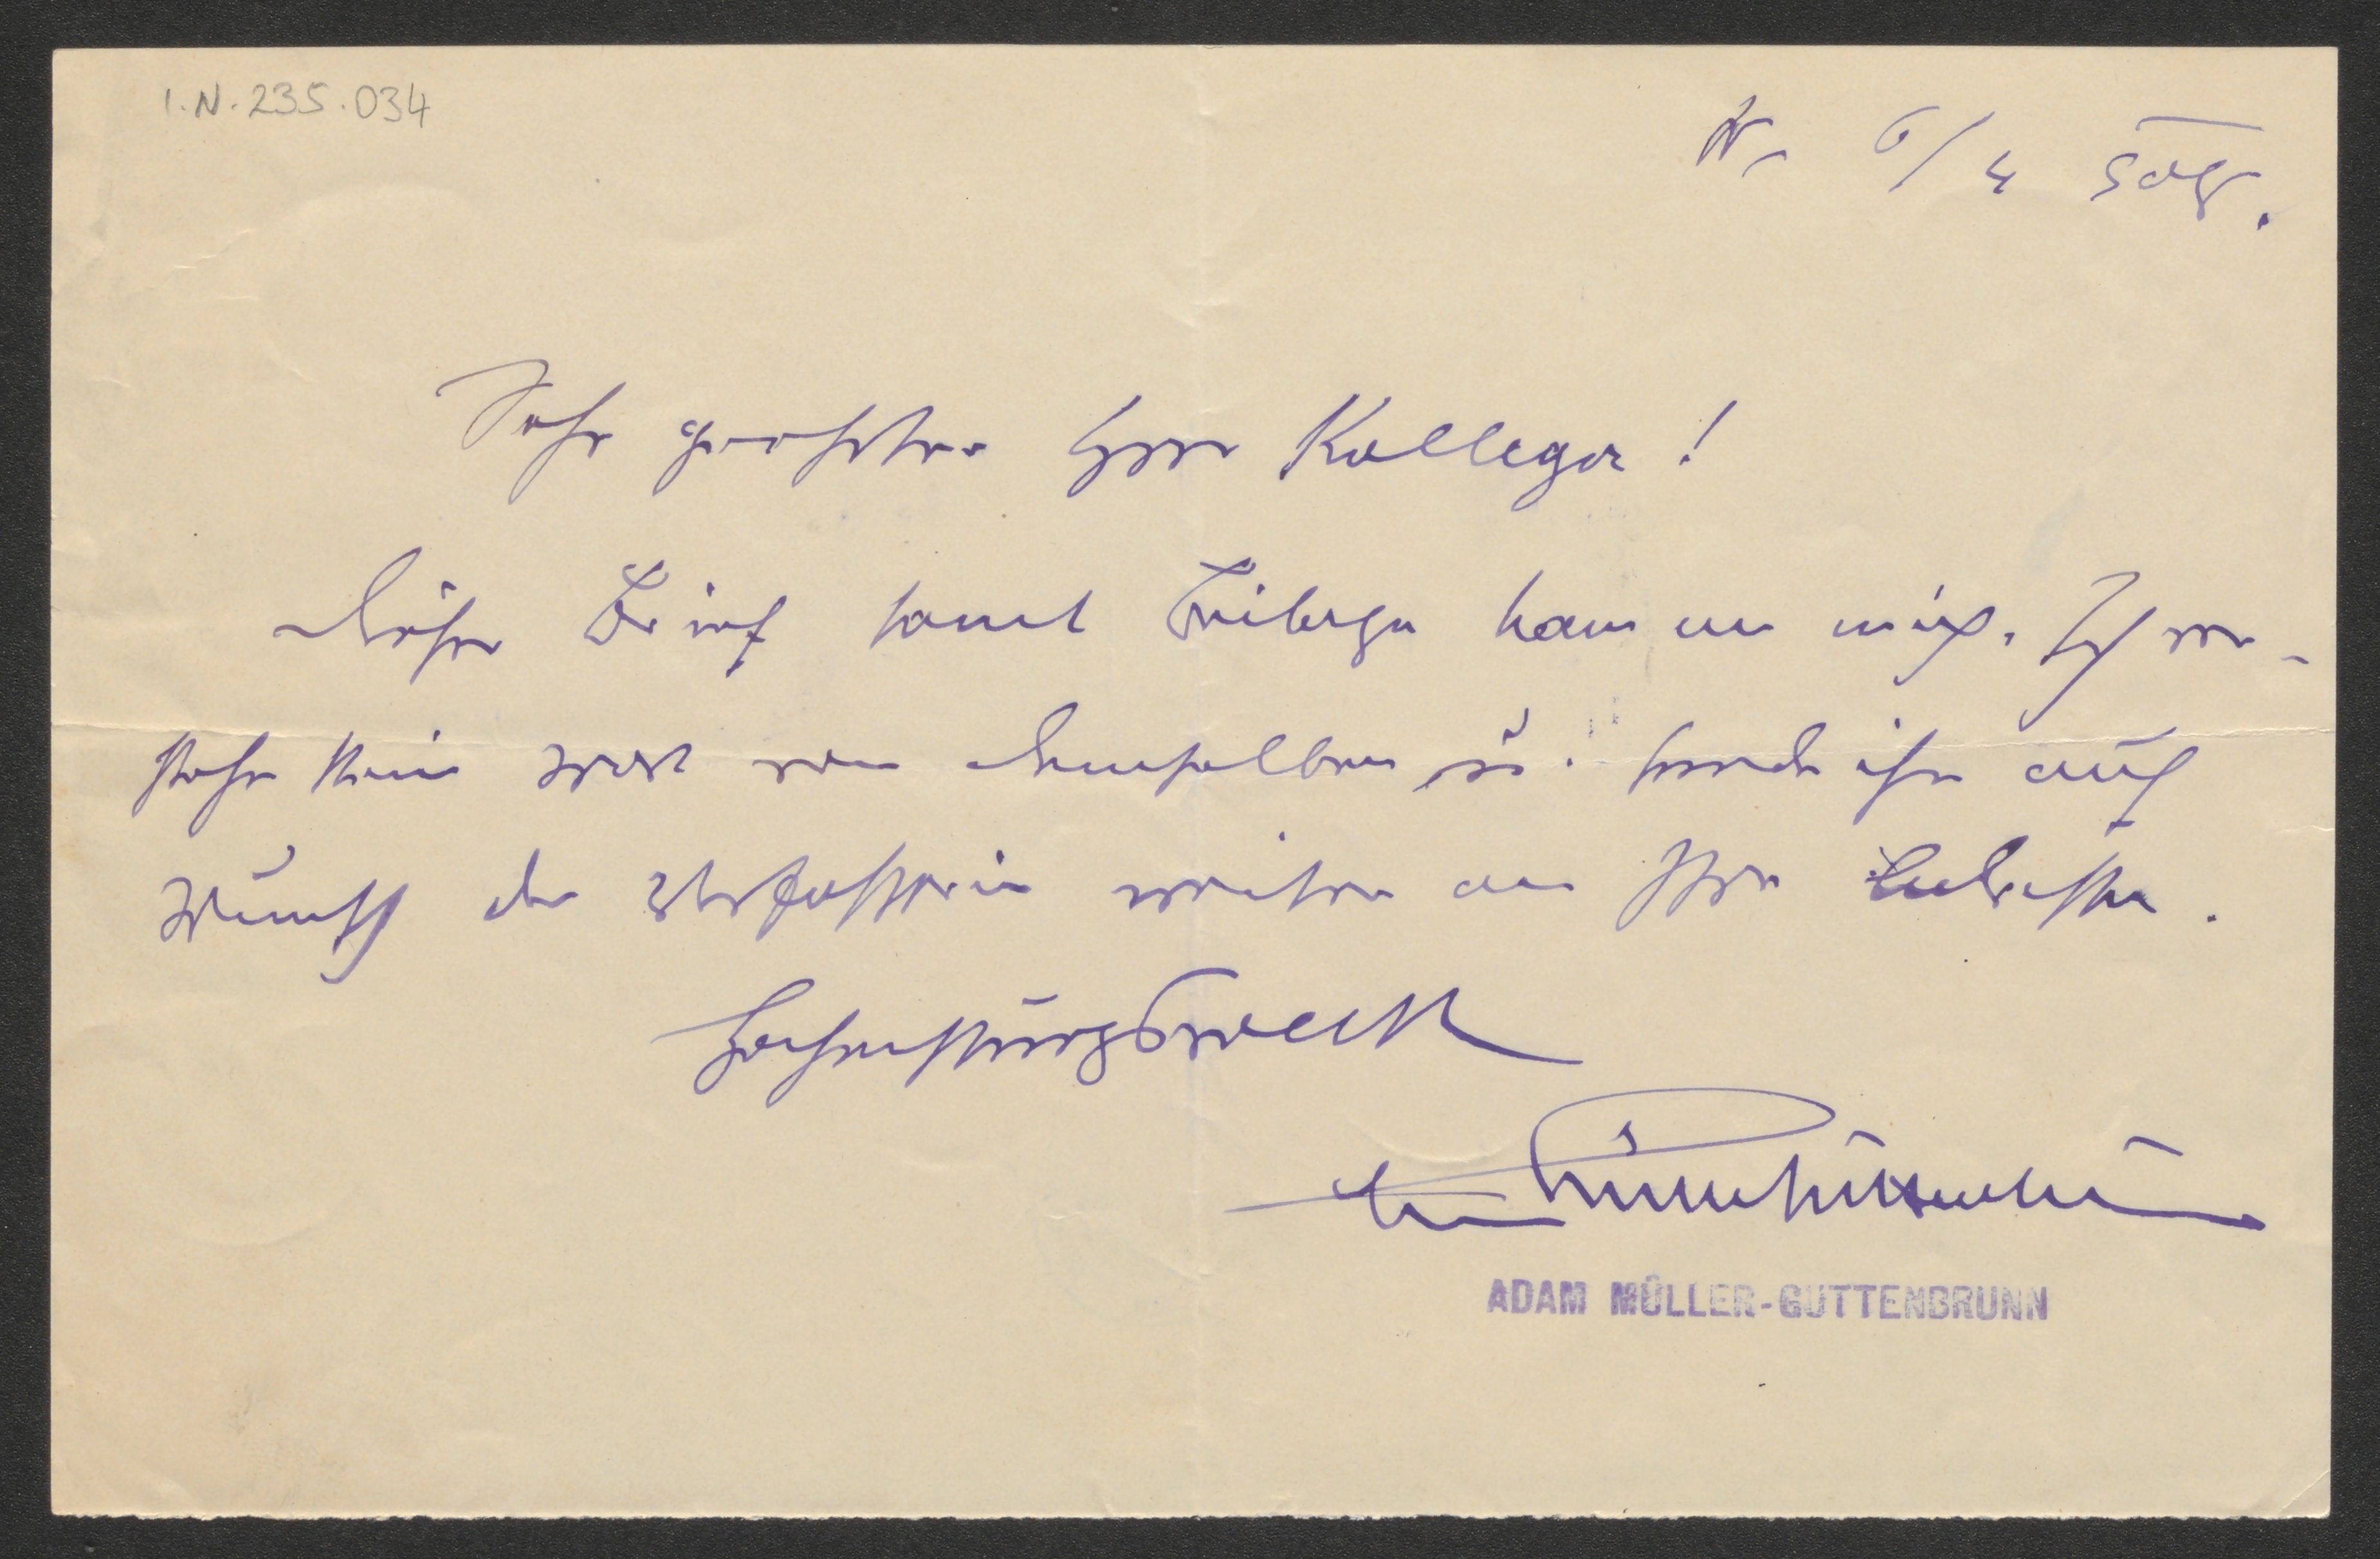 I.N. 235.034
W. 6/4
Sehr geehrter Herr Kollega!
Dieser Brief samt Beilage kam an mich. Ich ver-
stehe kein Wort von demselben u. sende ihn auf
Wunsch der Verfasserin weiter an Ihre Adresse.
Hochachtungsvollst
AMüllerGuttenbrunn
ADAM MÜLLER-GUTTENBRUNN